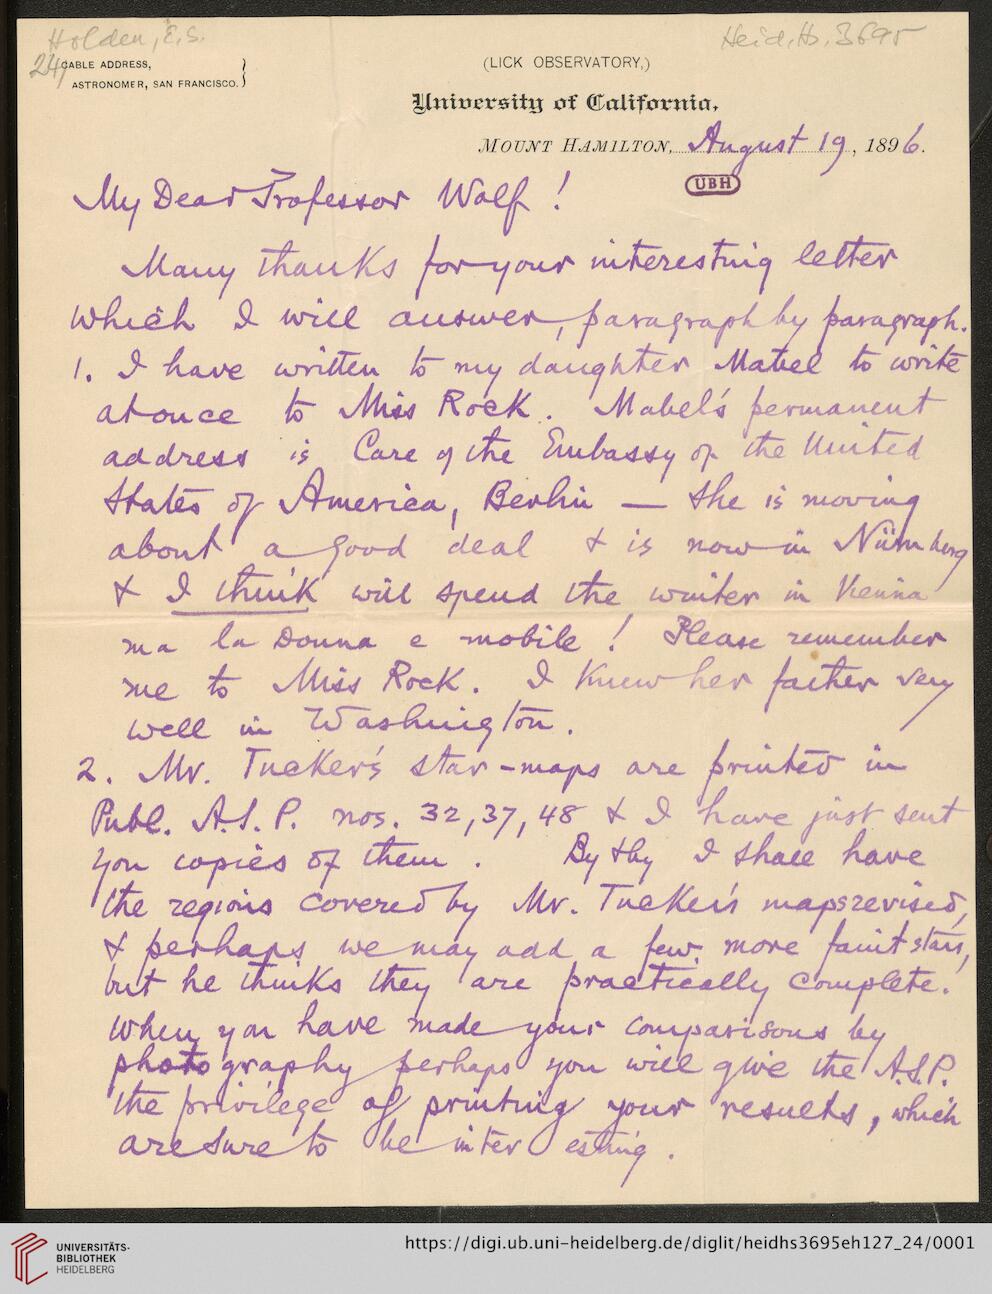 Holden, E. S.
Heid. Hs. 3695
24,
CABLE ADDRESS,
ASTRONOMER, SAN FRANCISCO. }
(LICK OBSERVATORY,)
University of California,
MOUNT HAMILTON, August 19, 1896.
UBH
My Dear Professor Wolf!
Many thanks for your interesting letter
which I will answer, paragraph by paragraph.
1. I have written to my daughter Mabel to write
at once to Miss Rock. Mabel's permanent
address is Care of the Embassy of the United
States of America, Berlin — She is moving
about a good deal & is now in Nürnberg
& I think will spend the winter in Vienna
ma la Donna e mobile! Please remember
me to Miss Rock. I knew her father very
well in Washington.
2. Mr. Tucker's star-maps are printed in
Publ. A.S.P. nos. 32, 37, 48 & I have just sent
you copies of them. By & by I shall have
the regions covered by Mr. Tucker's maps revised,
& perhaps we may add a few more faint stars,
but he thinks they are practically complete.
When you have made your comparisons by
photography perhaps you will give the A.S.P.
the privilege of printing your results, which
are sure to be interesting.
UNIVERSITÄTS-
BIBLIOTHEK
HEIDELBERG
https://digi.ub.uni-heidelberg.de/diglit/heidhs3695eh127_24/0001